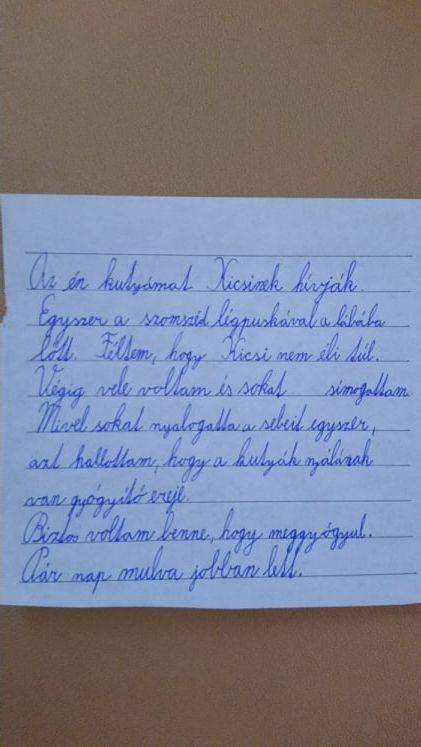 Az én kutyámat Kicsinek hívják.
Egyszer a szomszéd légpuskával a lábába
lőtt. Féltem, hogy Kicsi nem éli túl.
Végig vele voltam és sokat simogattam.
Mivel sokat nyalogatta a sebeit egyszer,
azt hallottam, hogy a kutyák nyálának
van gyógyító ereje.
Biztos voltam benne, hogy meggyógyul.
Pár nap mulva jobban lett.